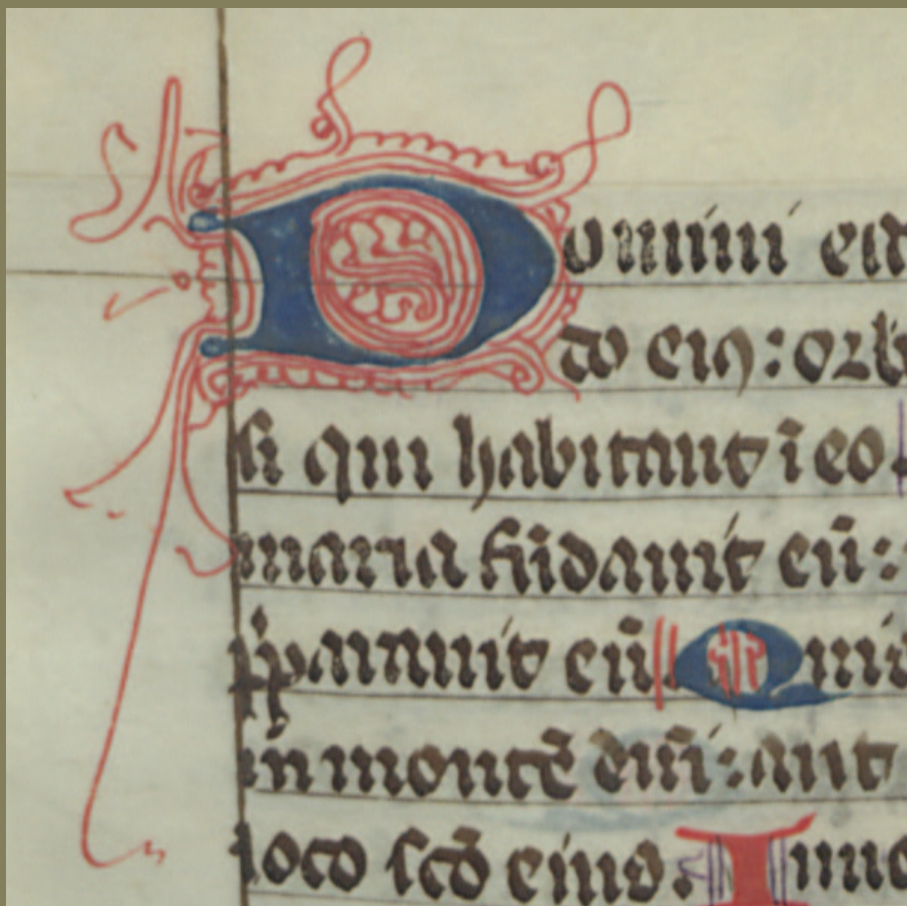 Domini est
do eiꝰ: orb
si qui habitant ī eo.
maria fūdauit eū:
p̄parauit eū Quis
in montē dn̄i: aut
loco scō eius. Inno